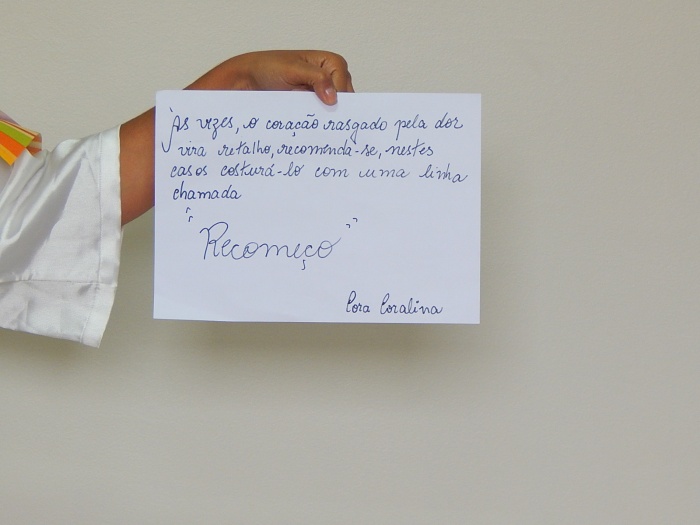 Às vezes, o coração rasgado pela dor
vira retalho, recomenda-se, nestes
casos costurá-lo com uma linha
chamada
"Recomeço"
Cora Coralina